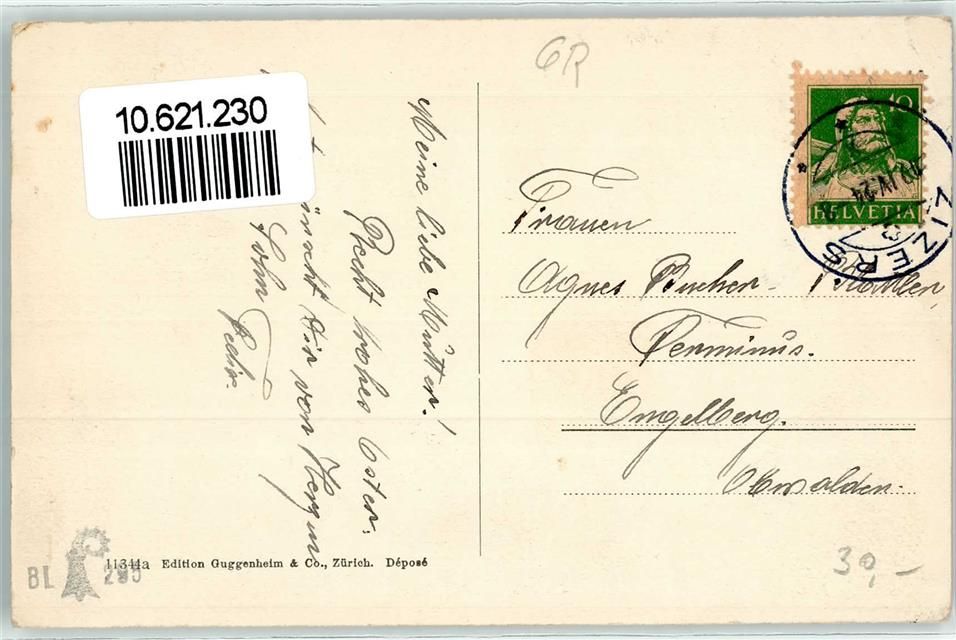 10.621.230
GR
Meine liebe Mutter!
Recht frohes Oster-
wünscht Dir von Herzen
Sohn
10
HELVETIA
ZIZERS
IV 24
Frauen
Agnes Bucher-
Terminus.
Engelberg.
Obwalden.
11344a Edition Guggenheim & Co., Zürich. Déposé
BL 295
39,-